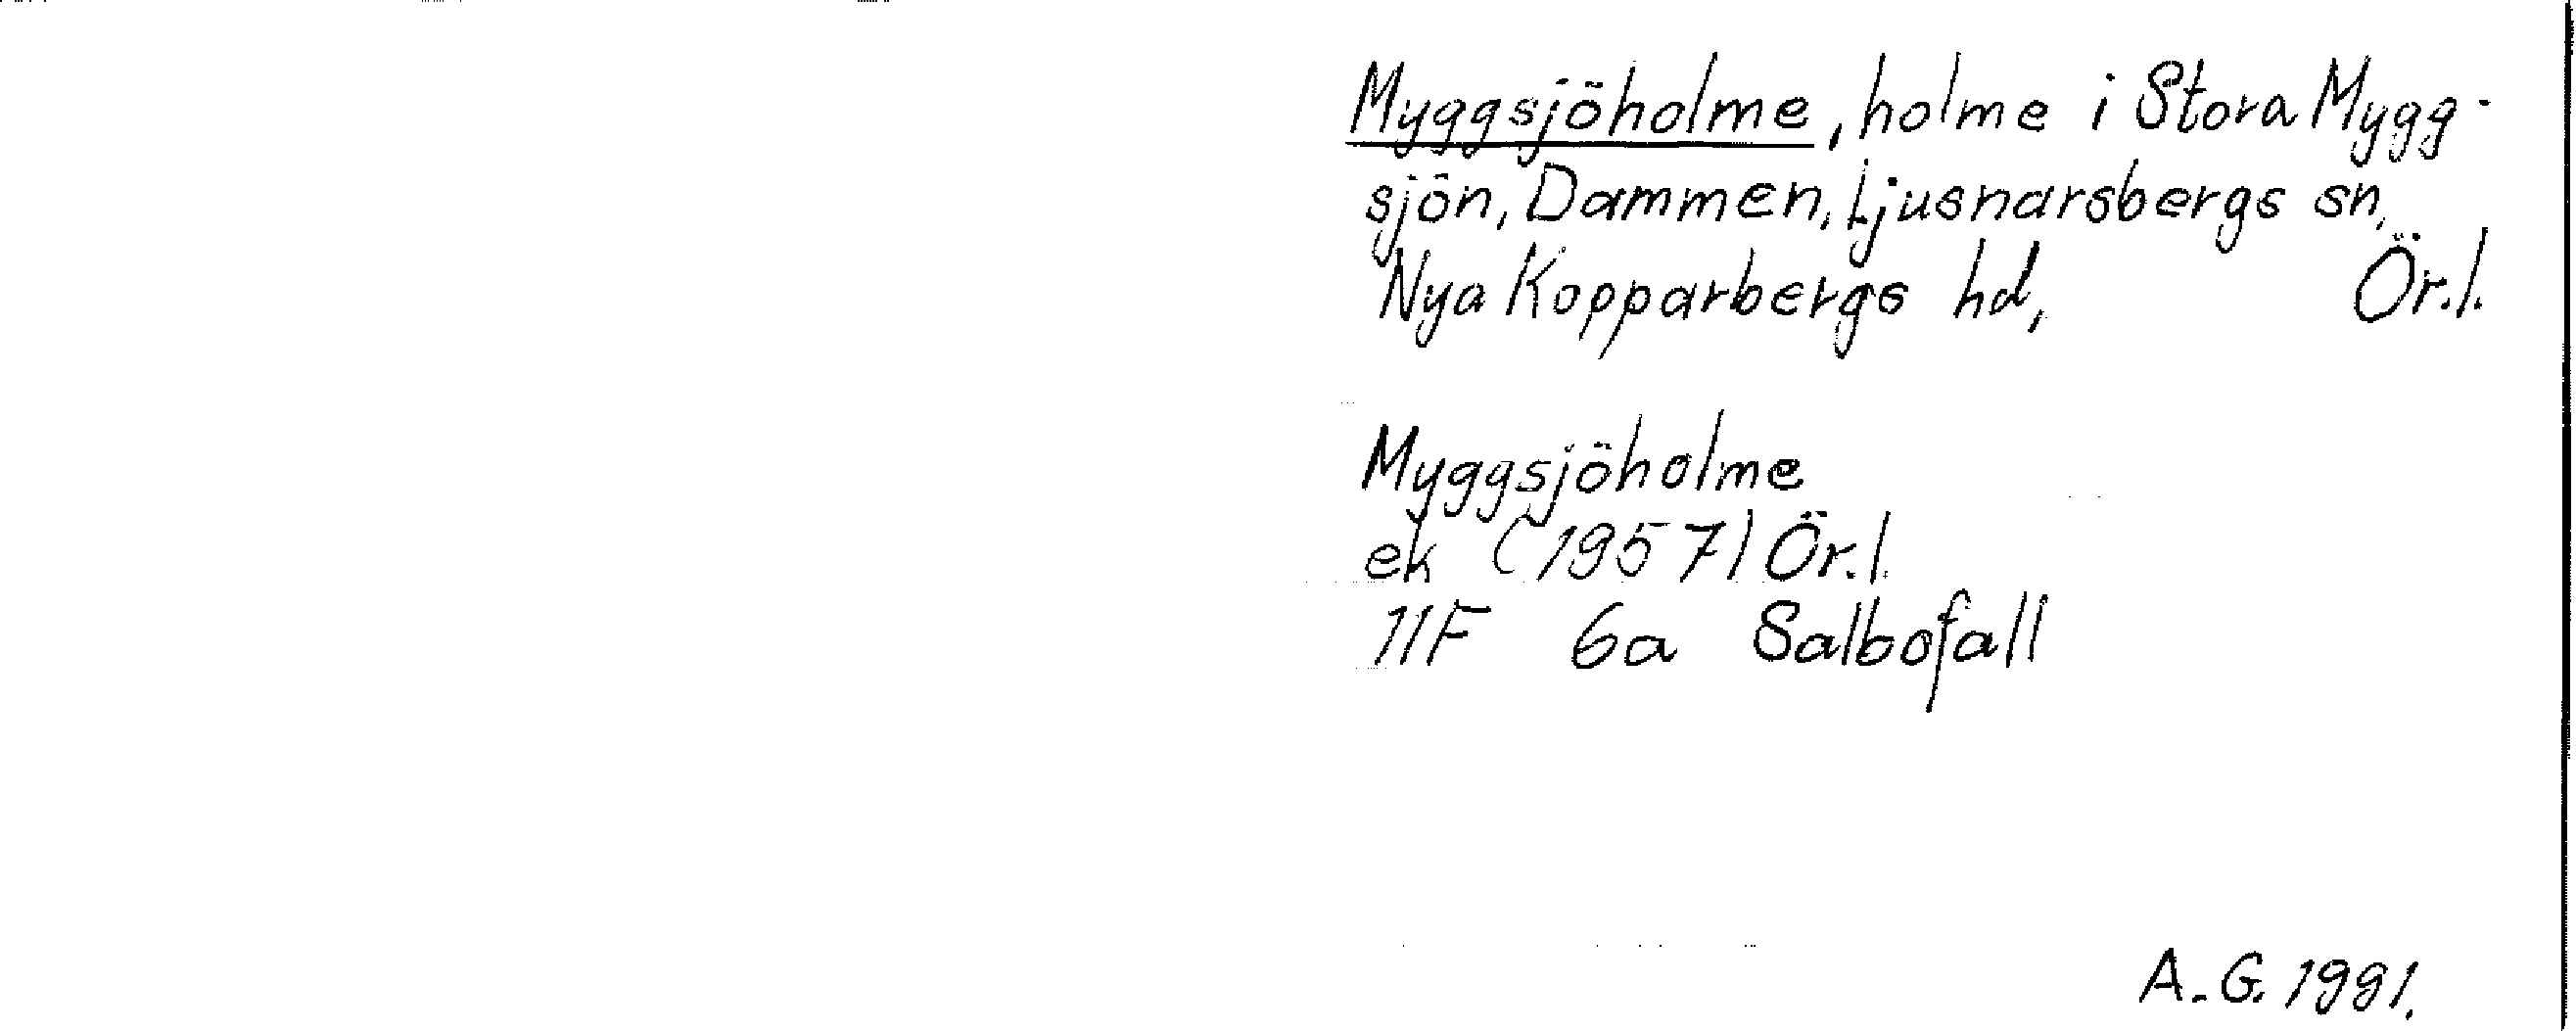 Myggsjöholme, holme i Stora Mygg-
sjön, Dammen, Ljusnarsbergs sn,
Nya Kopparbergs hd, Ör.l.
Myggsjöholme
ek (1957) Ör.l.
11F 6a Salbofall
A.G. 1991.